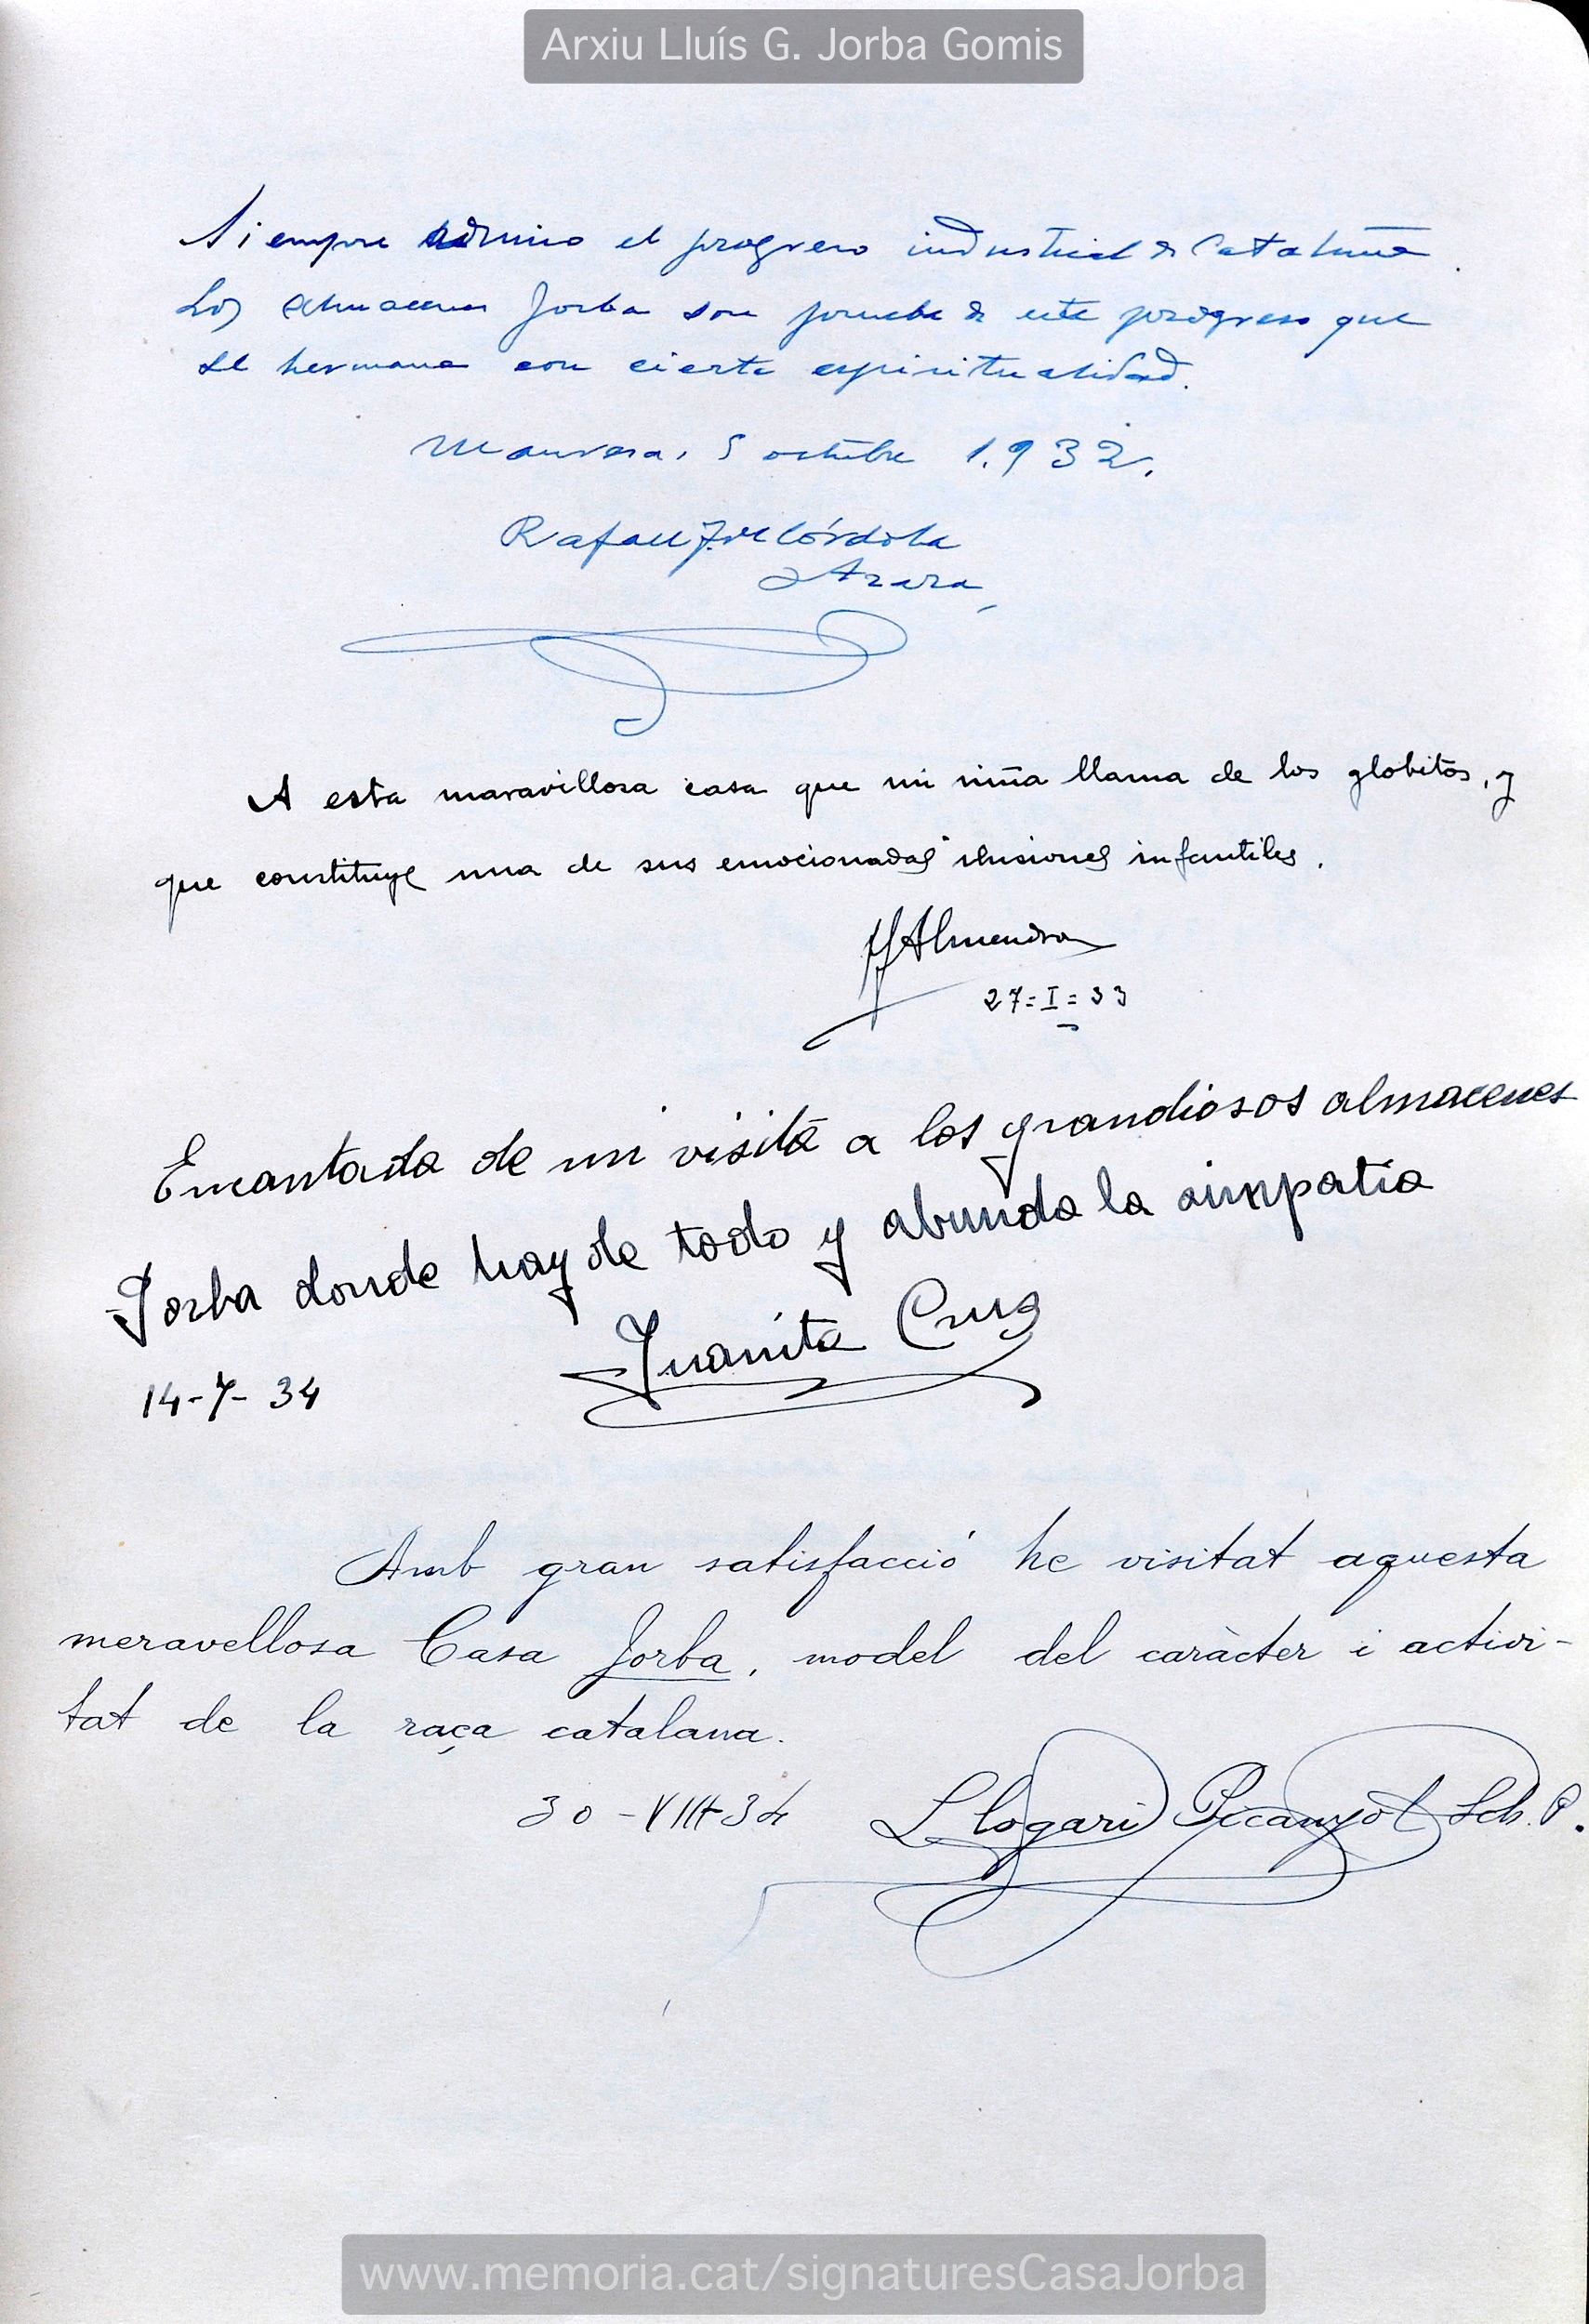 Arxiu Lluís G. Jorba Gomis
Siempre admiro el progreso industrial de Cataluña.
Los Almacenes Jorba son prueba de este progreso que
se hermana con cierta espiritualidad.
Manresa, 5 octubre 1.932.
Rafael F. de Córdoba
Azara
A esta maravillosa casa que mi niña llama de los globitos, y
que constituye una de sus emocionadas ilusiones infantiles.
Almendros
27=I=33
Encantada de mi visita a los grandiosos almacenes
Jorba donde hay de todo y abunda la simpatia
Juanita Cruz
14-7-34
Amb gran satisfacció he visitat aquesta
meravellosa Casa Jorba, model del caràcter i activi-
tat de la raça catalana.
30-VIII-34 Llogari Picanyol Sch. P.
www.memoria.cat/signaturesCasaJorba